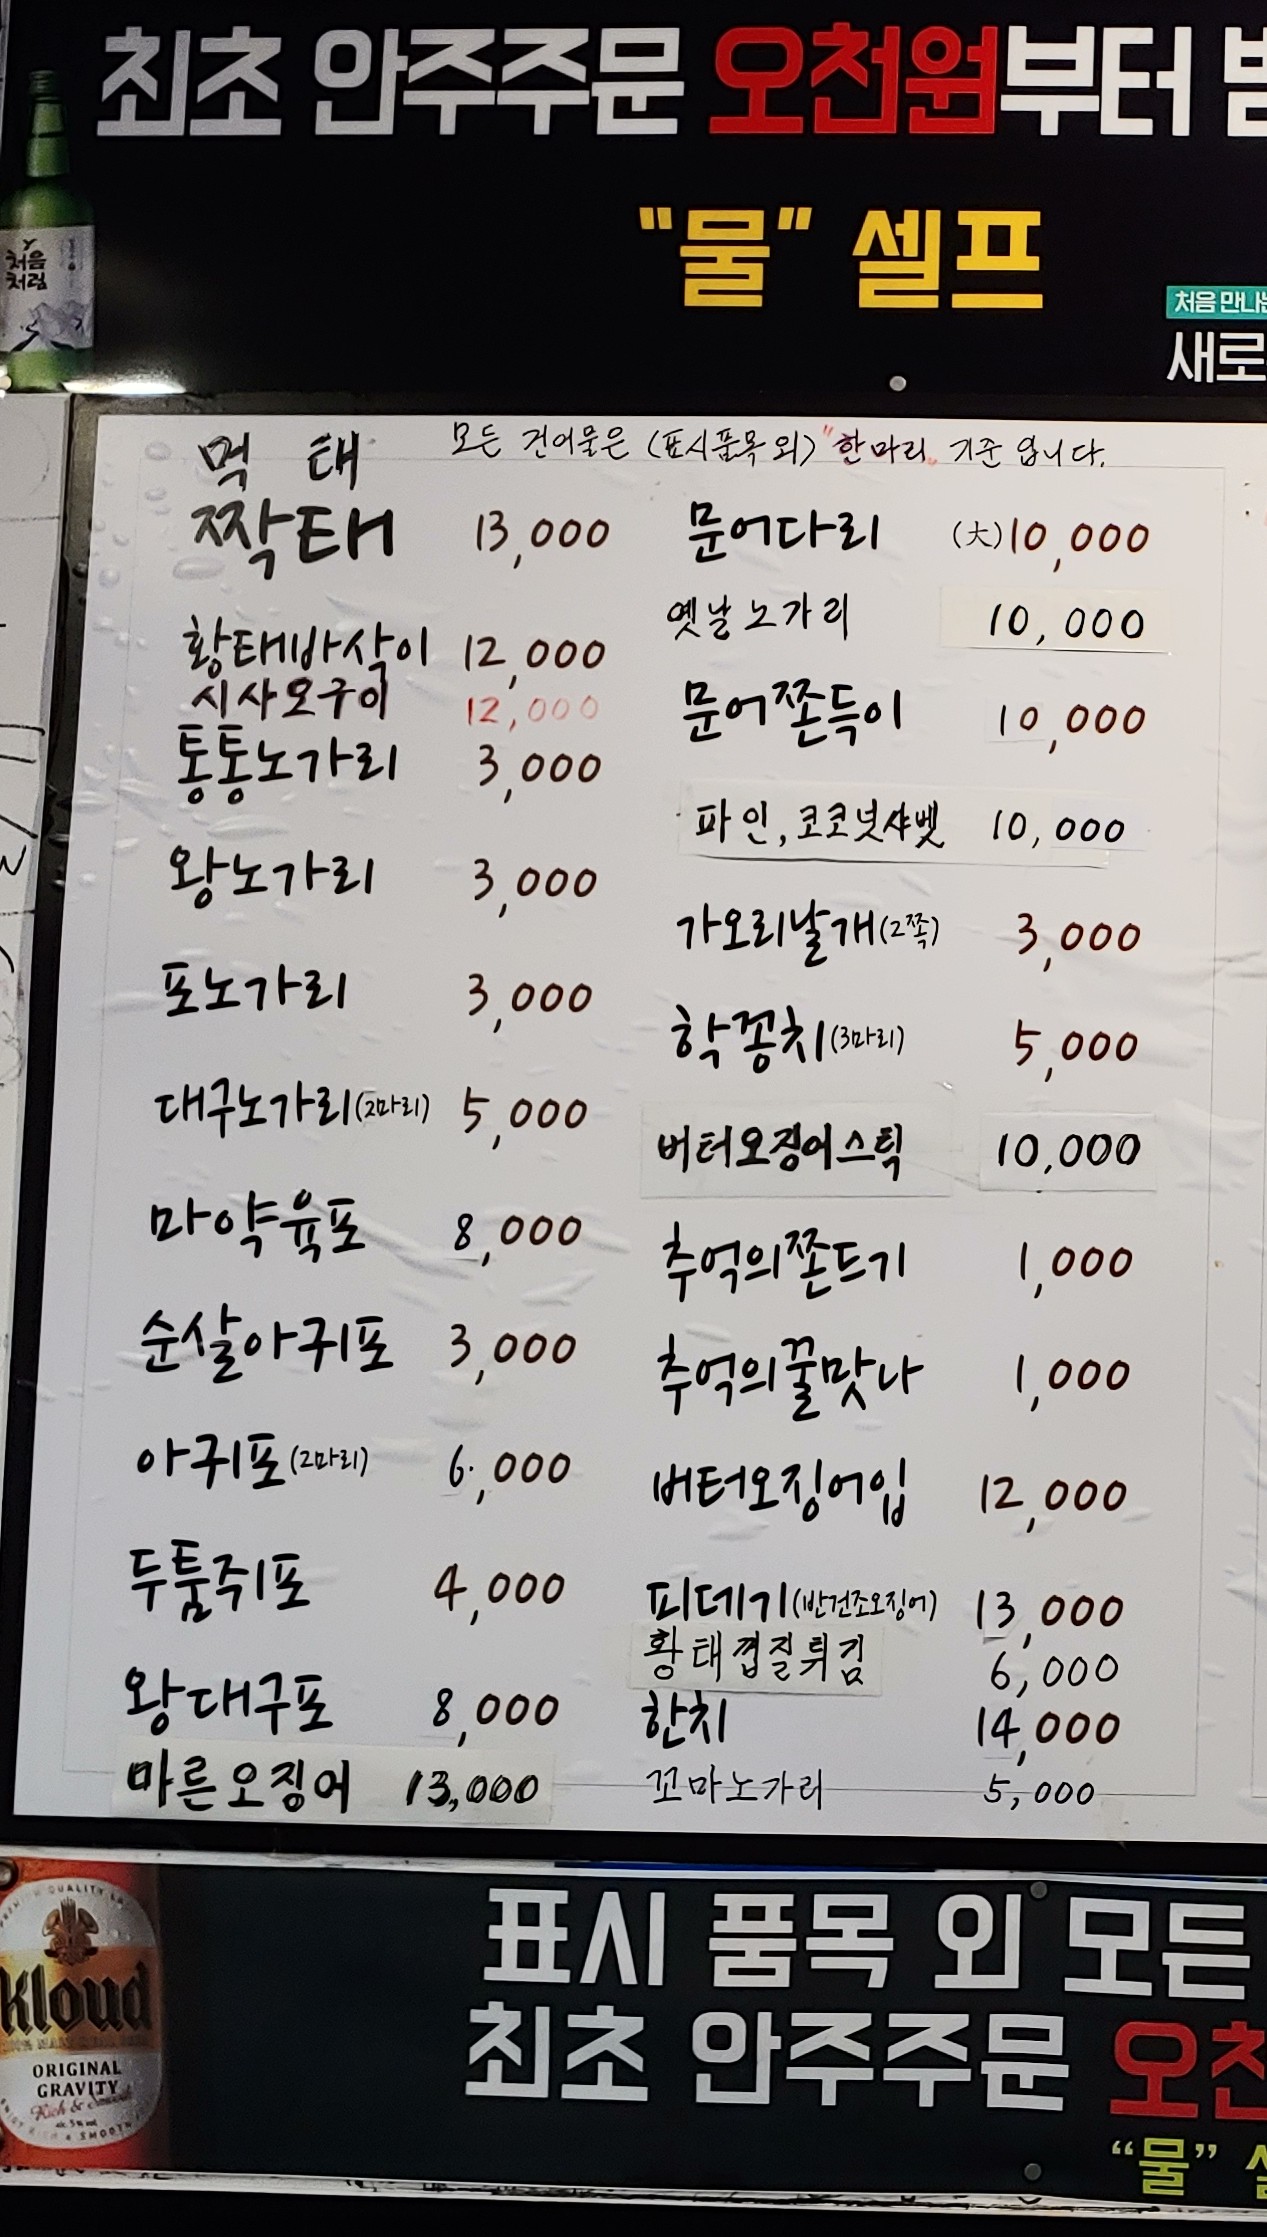 최초 안주주문 오천원부터
"물" 셀프
처음처럼
처음 만나는
새로
먹 태
모든 건어물은 (표시품목 외) "한마리" 기준 입니다.
짝태 13,000
황태바삭이 12,000
시사모구이 12,000
통통노가리 3,000
왕노가리 3,000
포노가리 3,000
대구노가리(2마리) 5,000
마약육포 8,000
순살아귀포 3,000
아귀포(2마리) 6,000
두툼쥐포 4,000
왕대구포 8,000
마른오징어 13,000
문어다리 (大)10,000
옛날노가리 10,000
문어쫀득이 10,000
파인,코코넛샤벳 10,000
가오리날개(2쪽) 3,000
학꽁치(3마리) 5,000
버터오징어스틱 10,000
추억의쫀드기 1,000
추억의꿀맛나 1,000
버터오징어입 12,000
피데기(반건조오징어) 13,000
황태껍질튀김 6,000
한치 14,000
꼬마노가리 5,000
Kloud
ORIGINAL
GRAVITY
표시 품목 외 모든
최초 안주주문 오천
"물" 셀